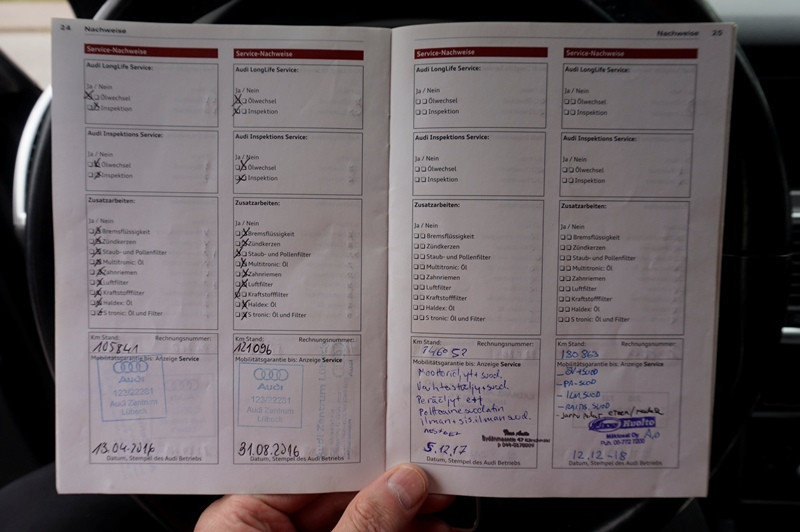 24 Nachweise
Service-Nachweise
Audi LongLife Service:
Ja / Nein
Ölwechsel
Inspektion
Audi Inspektions Service:
Ja / Nein
Ölwechsel
Inspektion
Zusatzarbeiten:
Ja / Nein
Bremsflüssigkeit
Zündkerzen
Staub- und Pollenfilter
Multitronic: Öl
Zahnriemen
Luftfilter
Kraftstofffilter
Haldex: Öl
S tronic: Öl und Filter
Km Stand: Rechnungsnummer:
105841
Mobilitätsgarantie bis: Anzeige Service
Audi
Audi Zentrum
Lübeck
13.04.2016
Datum, Stempel des Audi Betriebs
Service-Nachweise
Audi LongLife Service:
Ja / Nein
Ölwechsel
Inspektion
Audi Inspektions Service:
Ja / Nein
Ölwechsel
Inspektion
Zusatzarbeiten:
Ja / Nein
Bremsflüssigkeit
Zündkerzen
Staub- und Pollenfilter
Multitronic: Öl
Zahnriemen
Luftfilter
Kraftstofffilter
Haldex: Öl
S tronic: Öl und Filter
Km Stand: Rechnungsnummer:
121096
Mobilitätsgarantie bis: Anzeige Service
Audi
Audi Zentrum
Lübeck
31.08.2016
Datum, Stempel des Audi Betriebs
Nachweise 25
Service-Nachweise
Audi LongLife Service:
Ja / Nein
Ölwechsel
Inspektion
Audi Inspektions Service:
Ja / Nein
Ölwechsel
Inspektion
Zusatzarbeiten:
Ja / Nein
Bremsflüssigkeit
Zündkerzen
Staub- und Pollenfilter
Multitronic: Öl
Zahnriemen
Luftfilter
Kraftstofffilter
Haldex: Öl
S tronic: Öl und Filter
Km Stand: Rechnungsnummer:
Mobilitätsgarantie bis: Anzeige Service
5.12.17
Datum, Stempel des Audi Betriebs
Service-Nachweise
Audi LongLife Service:
Ja / Nein
Ölwechsel
Inspektion
Audi Inspektions Service:
Ja / Nein
Ölwechsel
Inspektion
Zusatzarbeiten:
Ja / Nein
Bremsflüssigkeit
Zündkerzen
Staub- und Pollenfilter
Multitronic: Öl
Zahnriemen
Luftfilter
Kraftstofffilter
Haldex: Öl
S tronic: Öl und Filter
Km Stand: Rechnungsnummer:
180863
Mobilitätsgarantie bis: Anzeige Service
Huolto
12.12-18
Datum, Stempel des Audi Betriebs